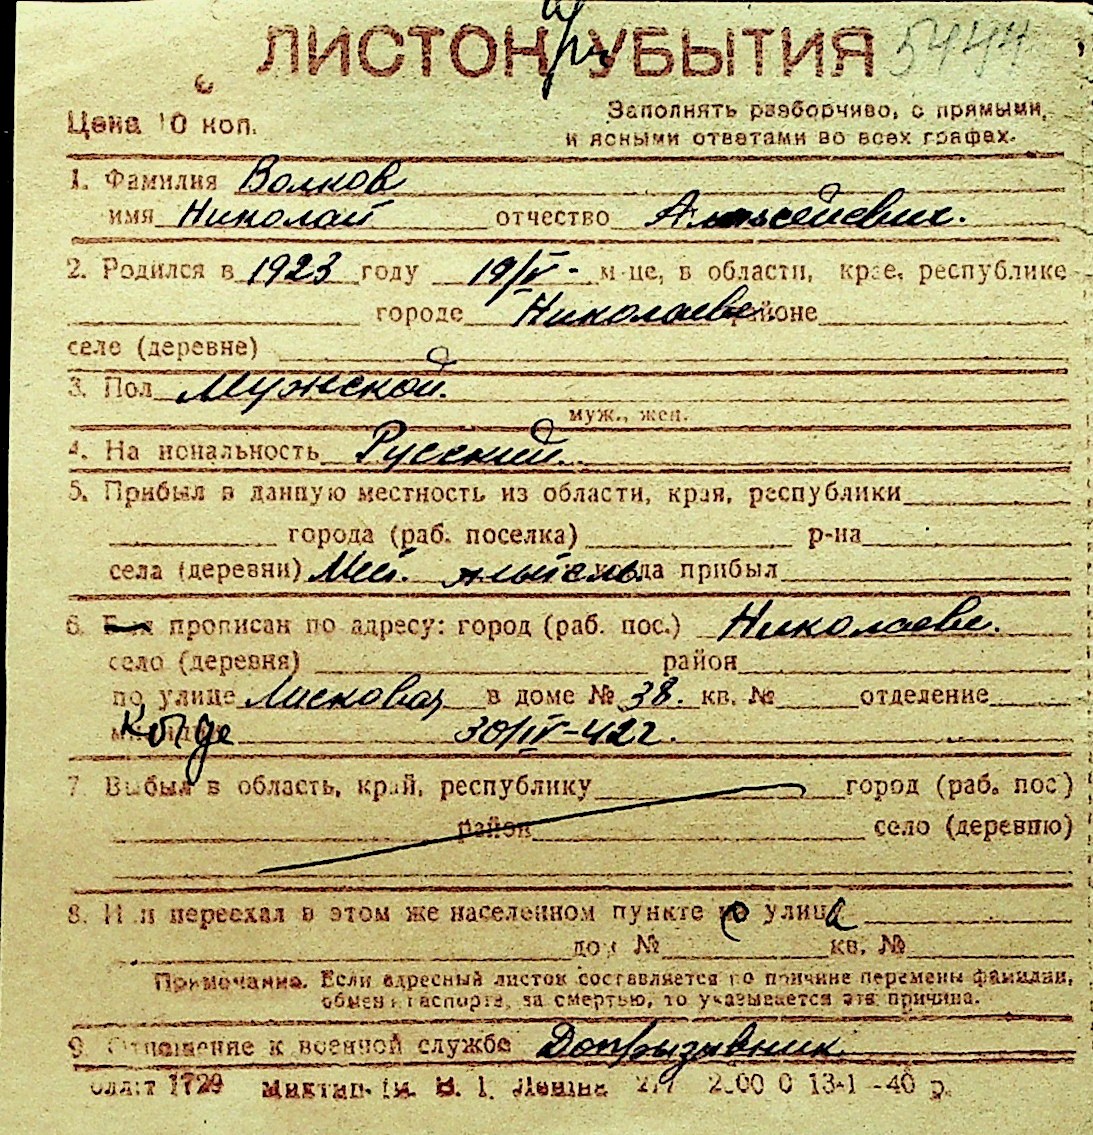 ЛИСТОК УБЫТИЯ 5444
Цена 10 коп.
Заполнять разборчиво, с прямыми,
и ясными ответами во всех графах.
1. Фамилия Волков
имя Николай отчество Алексеевич.
2. Родился в 1923 году 19/IV - м-це, в области, крае, республике
городе Николаеве районе
селе (деревне)
3. Пол Мужской.
муж., жен.
4. Национальность Русский.
5. Прибыл в данную местность из области, края, республики
города (раб. поселка) р-на
села (деревни) Мест. житель когда прибыл
6. прописан по адресу: город (раб. пос.) Николаеве.
село (деревня) район
по улице Лисковая в доме № 38. кв. № отделение
30/IV-42г.
7. Выбыл в область, край, республику город (раб. пос)
район село (деревню)
8. Или переехал в этом же населенном пункте улица
дом № кв. №
Примечание. Если адресный листок составляется по причине перемены фамилии,
обмена паспорта, за смертью, то указывается эта причина.
9. Отношение к военной службе Допризывник.
1729 В. І. Леніна 13-1 -40 р.